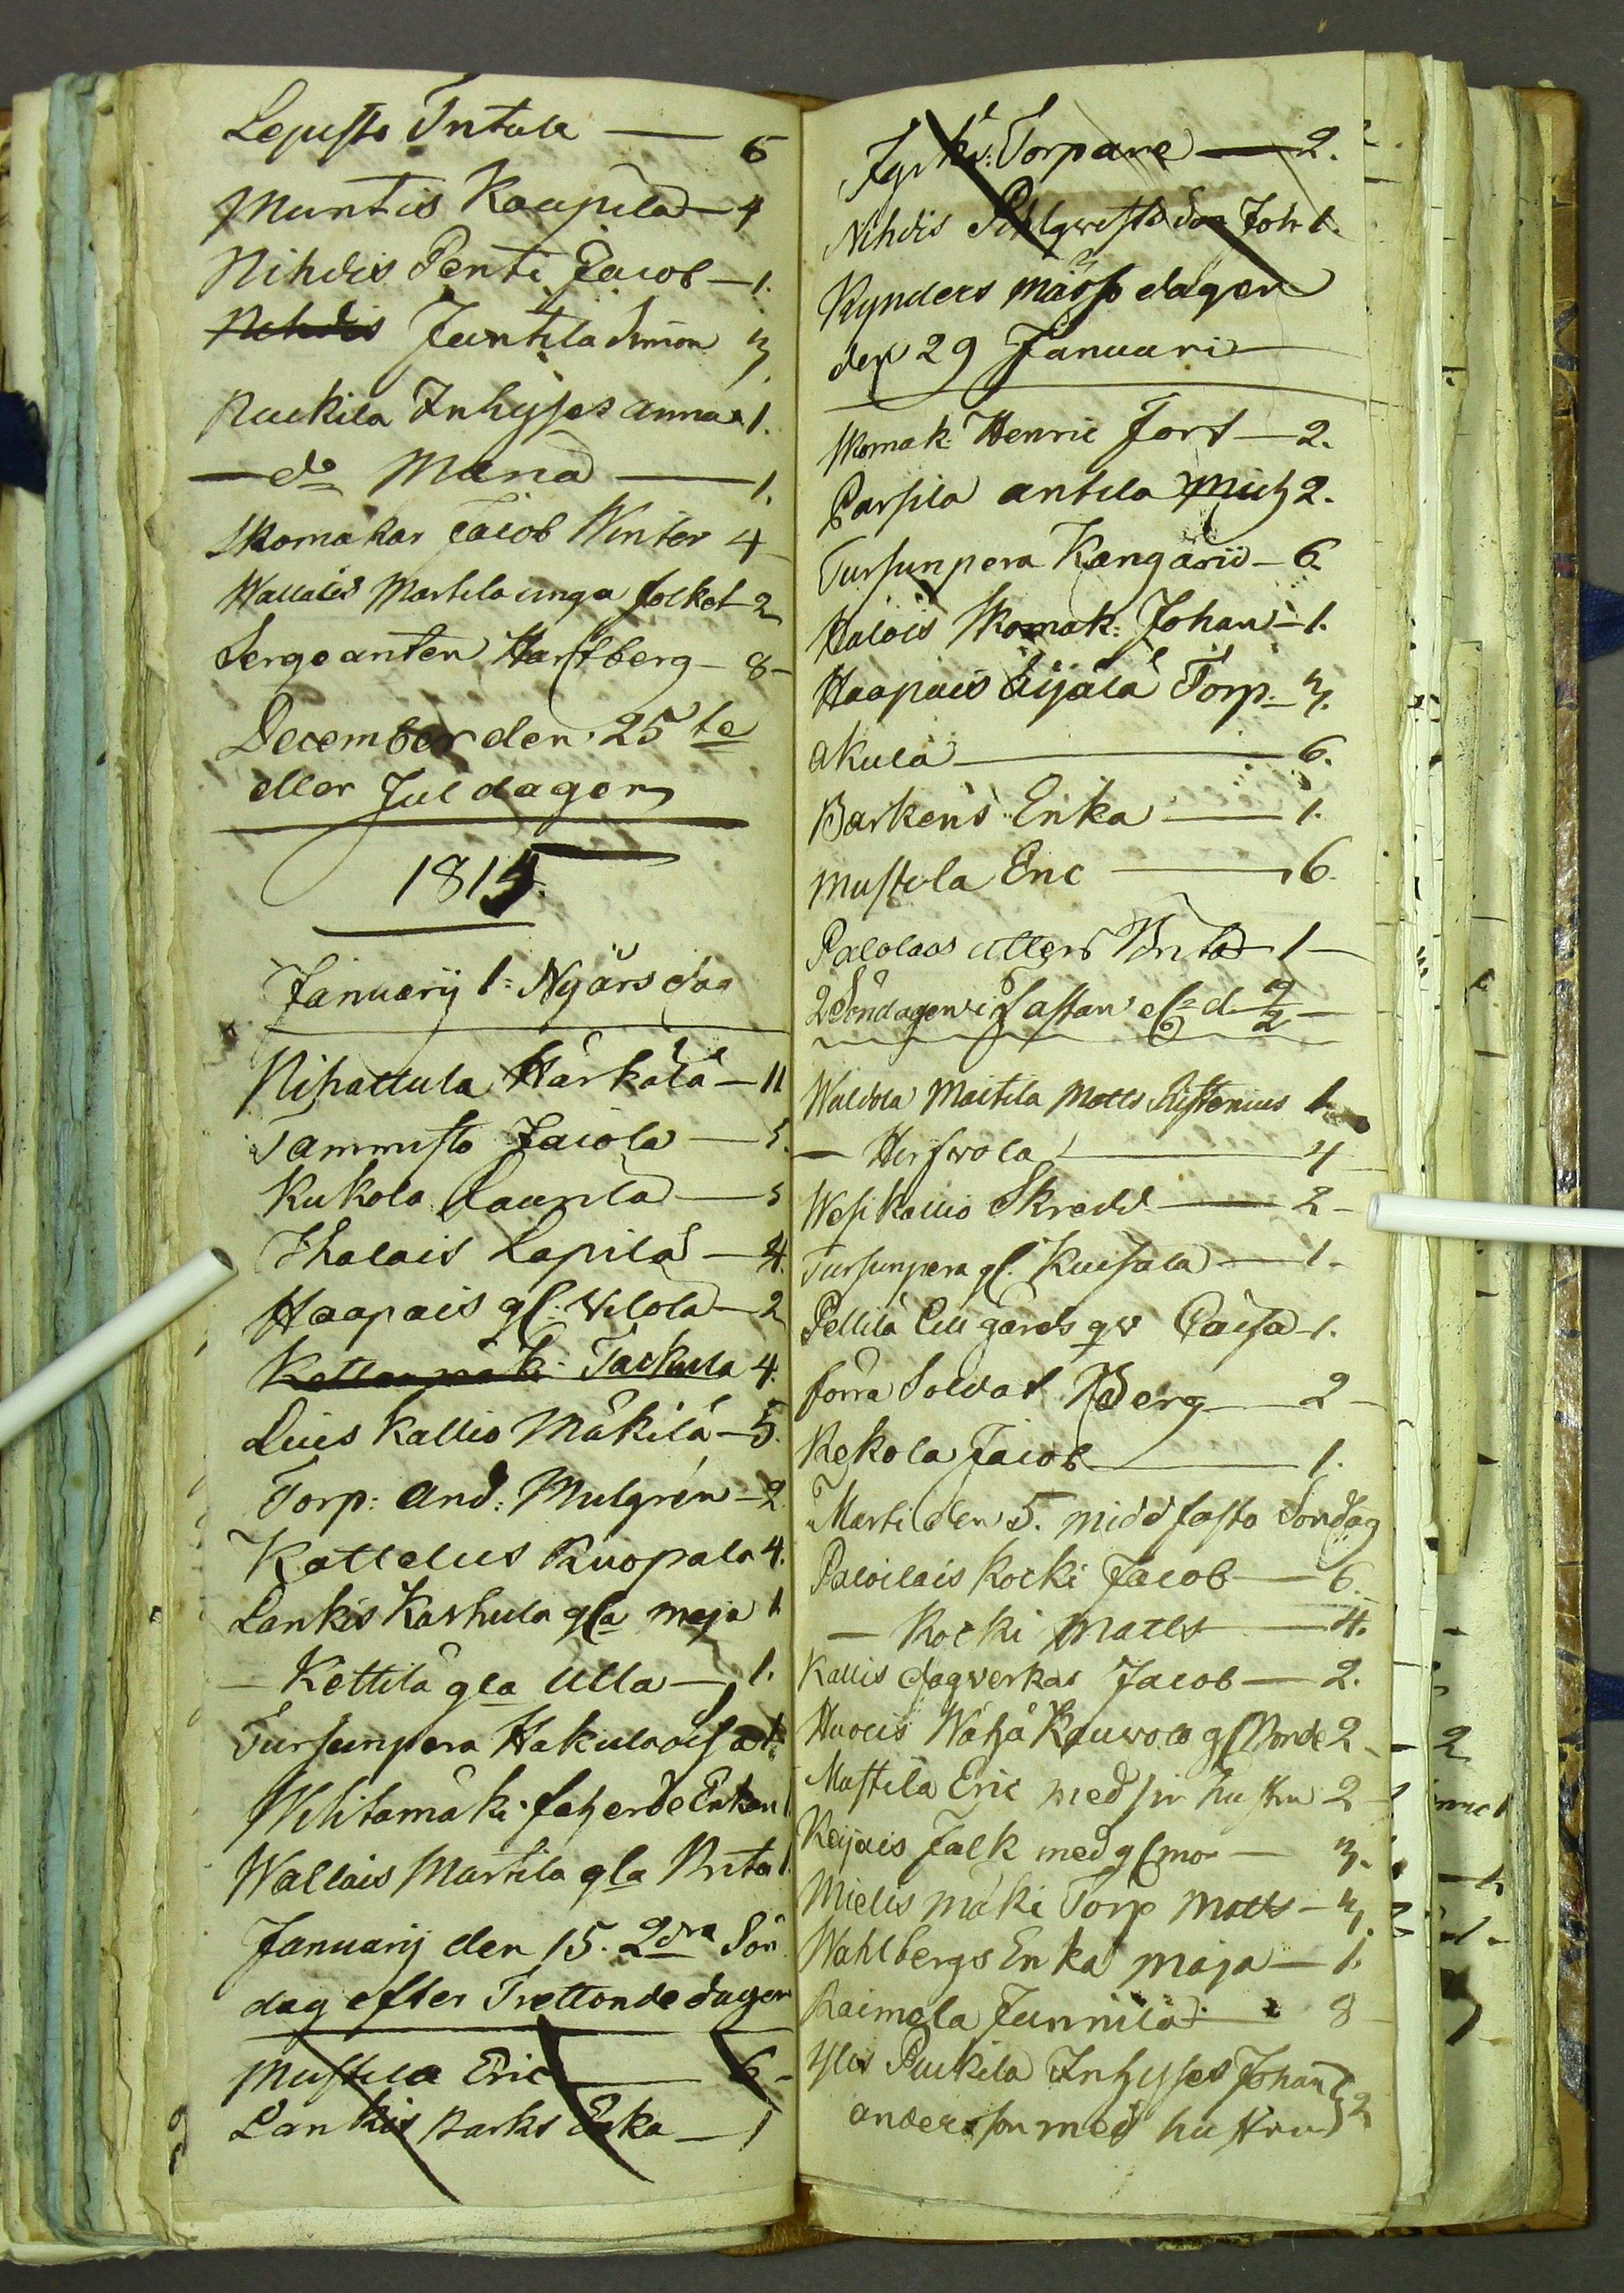 Lepisto Intula — 6
Muntis Kaupila — 4
Nihdis Penti Jacob — 1.
Nihdis Juntila Simon 3
Ruckila Inhyses Anna 1.
— do Maria — 1.
Skomakar Jacob Winter 4
Wallais Martila unga folket 2
Sergeanten Hartberg — 8 —
December den 25te
eller Juldagen
1815.
Januarij 1: Nyårsdag
Nihattula Härkälä — 11
Tammisto Jacola — 5.
Kukola Laurila — 5
Ihalais Lapila — 4.
Haapais gl. Wilola — 2
Kettanmäki Tackula 4.
Luis Kallio Mäkilä — 5.
Torp: And: Mulgrén — 2
Kattelus Kuopala 4.
Lankis Karhula gla maja 1
— Kettilä gla Ulla — 1.
Tursunpera Hakula 1.
Wihtamäki Enkan 1
Wallais Martila gla Brita 1.
Januarij den 15. 2dra Sön
dag efter Trettondedagen
Mustila Eric — 6 —
Lankis Barks Enka — 1
Jyrki: Torpare — 2.
Nihdis Joh 1.
Kynders mässo dagen
den 29 Januari
Skomak. Henric Fort — 2.
Parsila Antila Mich 2.
Tursunpera Kangari — 6.
Halois Skomak: Johan — 1.
Haapais Äijälä Torp. 3.
Akula — 6.
Barkens Enka — 1.
Mustila Eric — 6.
Palolaos Brita 1 —
2 Söndagen i Fastan d. 9/2 —
Waldola Maitila Matts Ristenius 1
— Hirswola — 4
Wesikallio Skredd — 2 —
Tursunpera gl. Kuisala — 1 —
Pellilä Lill gårds qv Caisa — 1.
förra Soldat Berg — 2 —
Kekola Jacob — 1.
Marti den 5. midd fasto Söndag
Paloilais Kocki Jacob — 6.
— Kocki Matts — 4.
Kallis dagverkar Jacob — 2.
Huovis Wähä Kauwola gl Bonde 2 —
Mustila Eric med sin hustru 2 —
Keijais Falk med gl mor — 3.
Mielismäki Torp Matts — 3.
Wahlbergs Enka Maja — 1.
Raimela Junnila — 8
Ylis Ruckila Inhyses Johan
Andersson med hustru 2